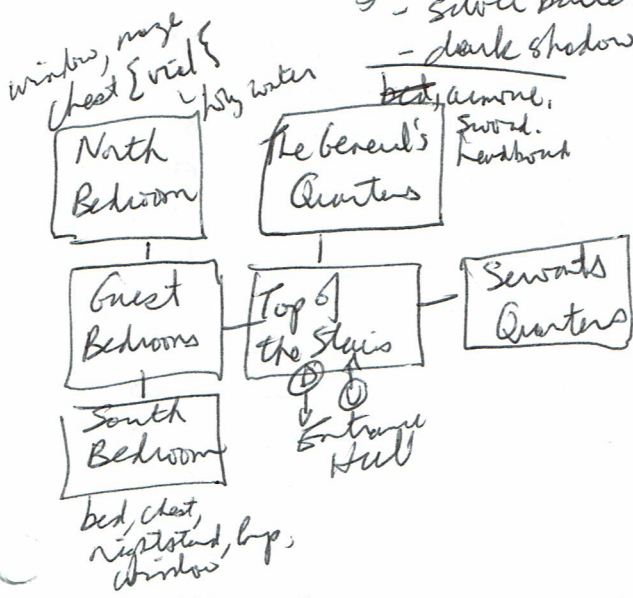 - dark shadow
window,
chest { vial {
holy water
bed, armoire,
sword.
headboard
North
Bedroom
The General's
Quarters
Guest
Bedrooms
Top of
the Stairs
Servants
Quarters
D
U
Entrance
Hall
South
Bedroom
bed, chest,
nightstand, lamp,
window